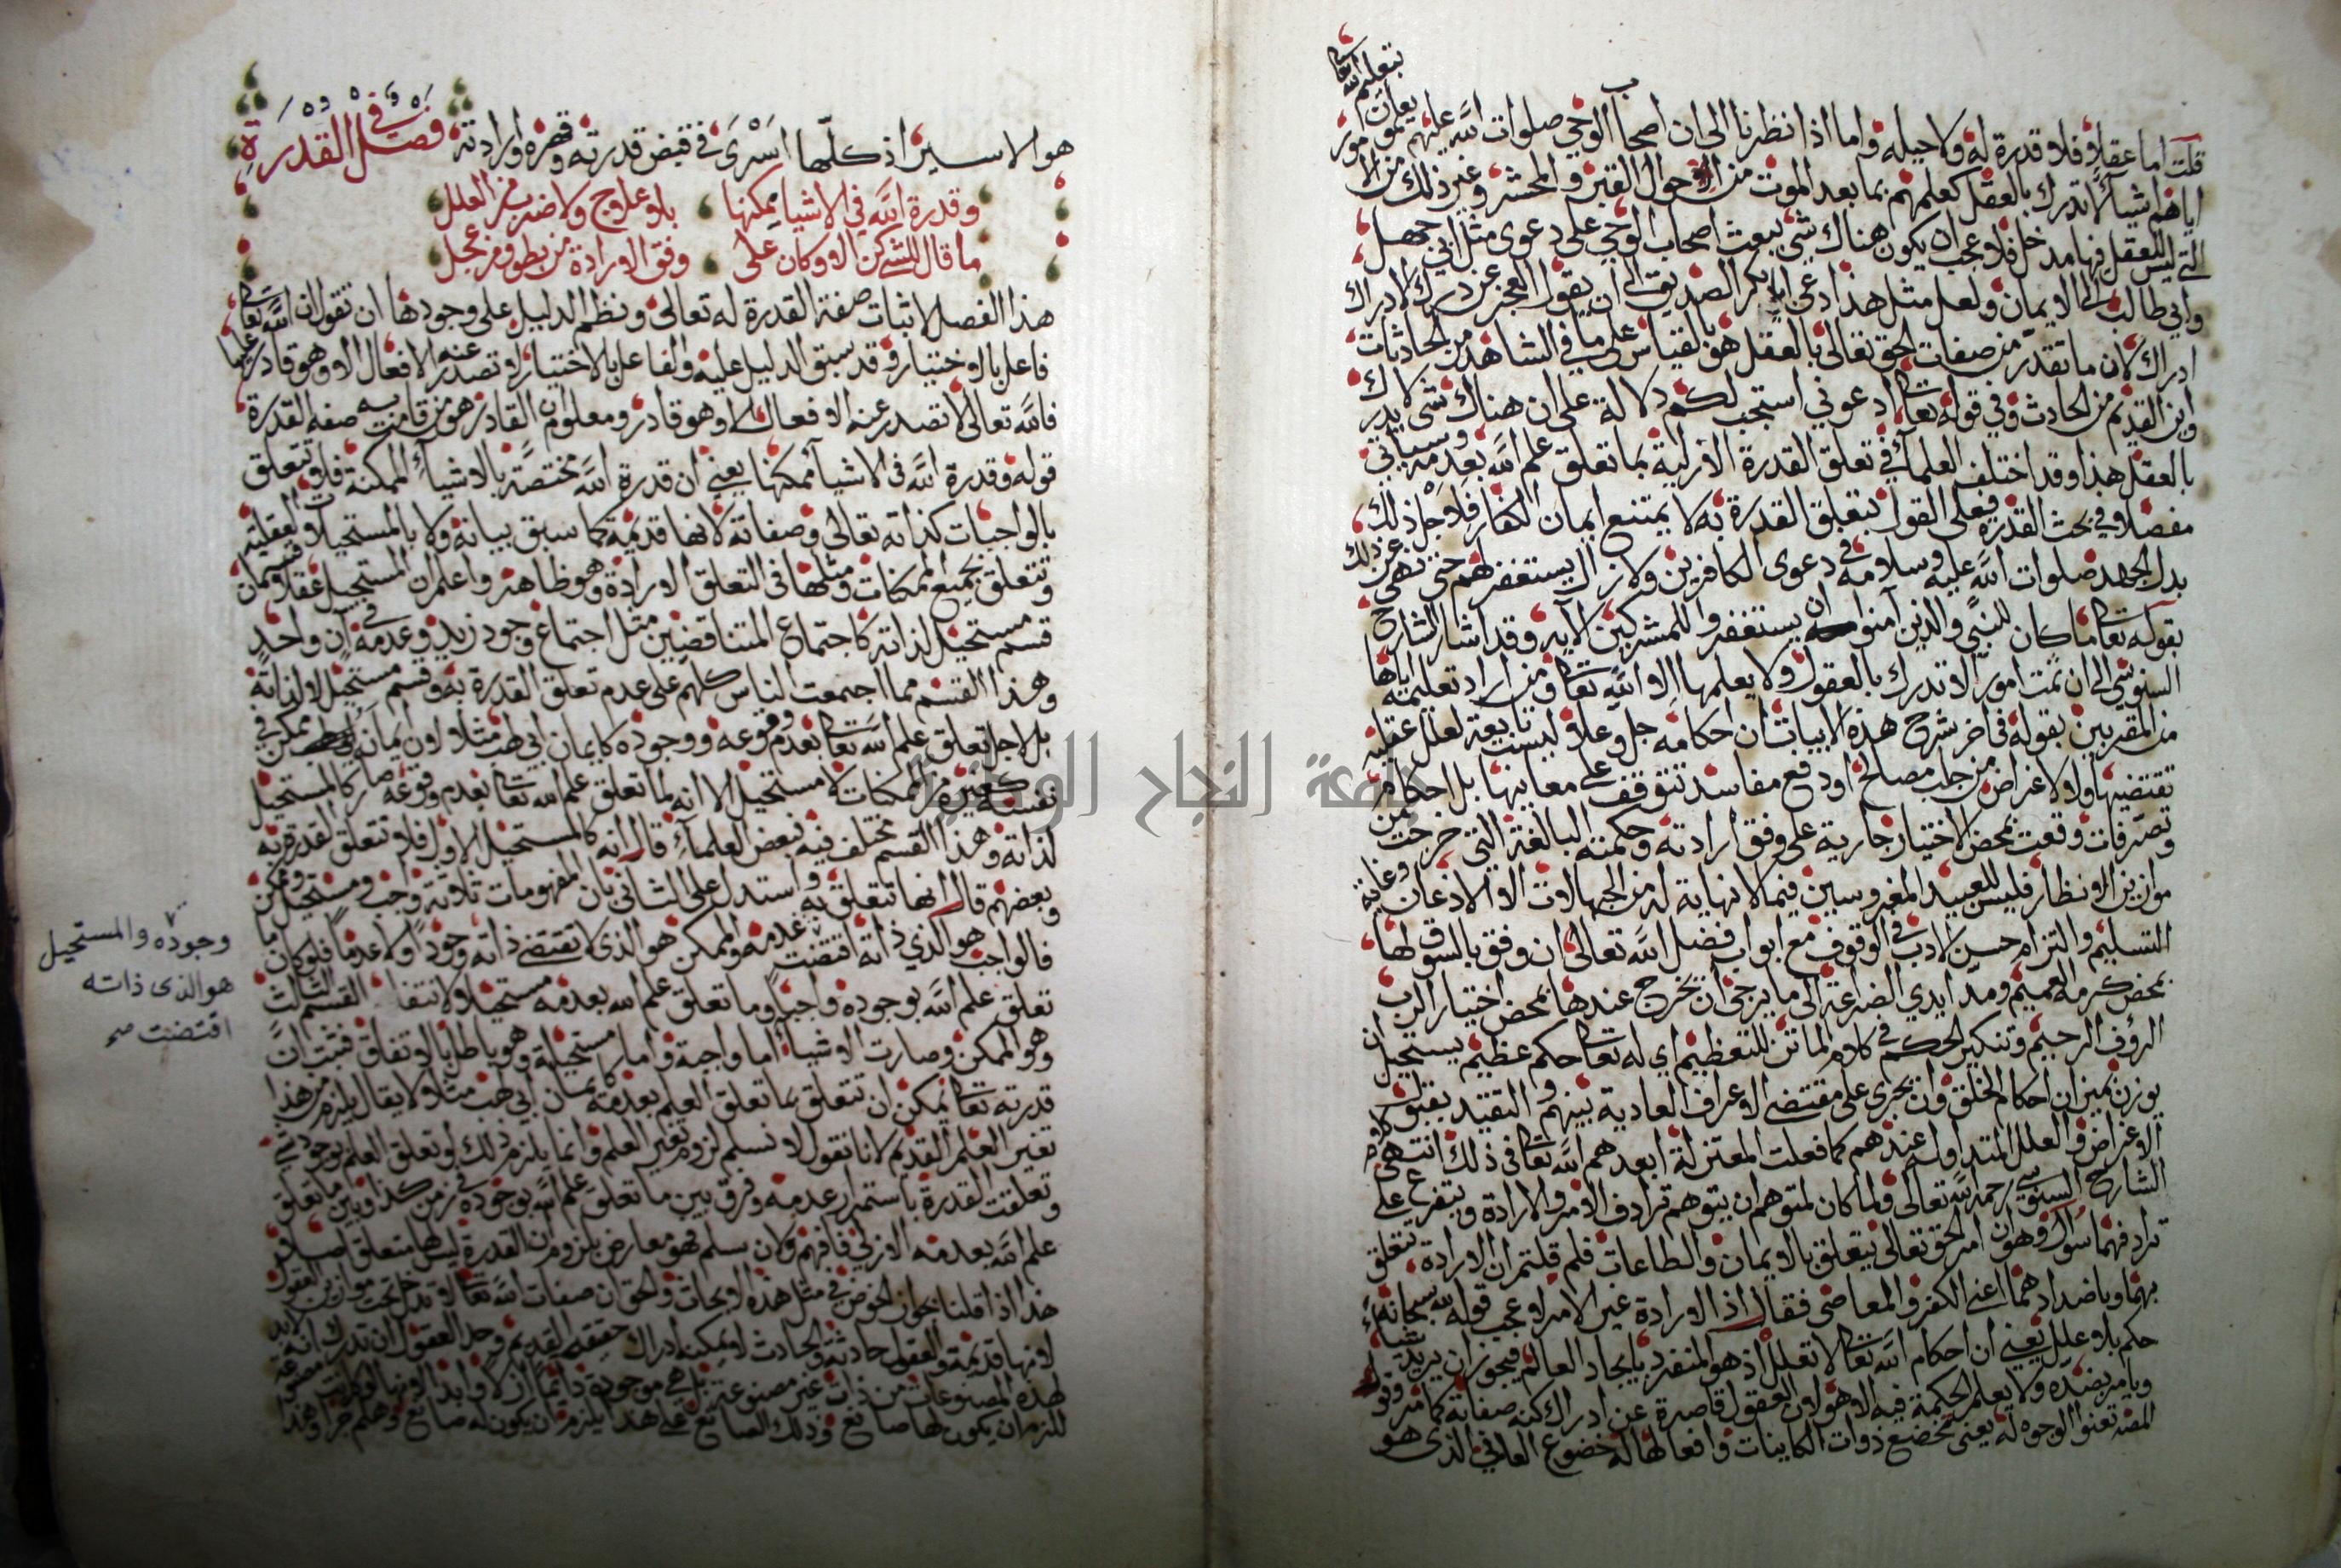 قلت اما عقلا فلا قدرة له ولا حيلة واما اذا نظرنا الى ان اصحاب الوحي صلوات الله عليهم يعلمون
بتعليم الله تعالى
اياهم اشياء لا تدرك بالعقل كعلمهم بما بعد الموت من احوال القبر والمحشر وغير ذلك من الامور
التي ليس للعقل فيها مدخل فلا عجب ان يكون هناك شي يبعث اصحاب الوحي على دعوى مثل ابي جهل
وابي طالب الى الايمان ولعل مثل هذا دعى ابا بكر الصديق الى ان يقول العجز عن درك الادراك
ادراك لان ما تقدر من صفات الحق تعالى بالعقل هو بالقياس على ما في الشاهد من الحادثات
واين القديم من الحادث وفي قوله تعا ادعوني استجب لكم دلالة على ان هناك شي لا يدرك
بالعقل هذا وقد اختلف العلماء في تعلق القدرة الازلية بما تعلق علم الله بعدمه وسياتي
مفصلا في بحث القدرة فعلى القول بتعلق القدرة به لا يمتنع ايمان الكفار فلاجل ذلك
بدل الجهد صلوات الله عليه وسلامه في دعوى الكافرين ولا زال يستغفر لهم حتى نهي عن ذلك
بقوله تعا ما كان للنبي والذين آمنوا ان يستغفروا للمشركين الآية وقد اشار الشارح
السنوسي الى ان ثمت امورا لا تدرك بالعقول ولا يعلمها الا الله تعا ومن اراد تعليمه اياها
من المقربين بقوله في اخر شرح هذه الابيات ان احكامه جل وعلا ليست تابعة لعلل عقلية
تقتضيها ولا لاغراض من جلب مصالح او دفع مفاسد تتوقف على معانيها بل احكامه
وتصرفات وقعت بمحض الاختيار جارية على وفق ارادته وحكمته البالغة التي خرجت من
موازين الانظار فليس للعبيد المغروسين فيما لا نهاية له من الجهالات الا الاذعان وغاية
التسليم والتزام حسن الادب في الوقوف مع ابواب فضل الله تعالى ان وفق بالسوق لها
بمحض كرمه العميم ومد ايدي الضراعة الى ما يرجى ان يخرج عندها بمحض اختيار الرب
الرؤف الرحيم وتنكير الحكم في كلام الماتن للتعظيم اي له تعا حكم عظيم يستحيل ان
يوزن بميزان احكام الخلق وان يجرى على مقتضى الاعراف العادية بينهم والتقيد بقبول
الاغراض والعلل المتداولة عندهم كما فعلت المعتزلة ابعدهم الله تعا في ذلك انتهى كلام
الشارح السنوسي رحمه الله تعالى ولما كان لمتوهم ان يتوهم ترادف الامر والارادة ويتفرع على
ترادفهما سوال وهو ان امر الحق تعالى يتعلق بالايمان والطاعات فلم قلتم ان الارادة تتعلق
بهما وباضدادهما اعني الكفر والمعاصي فقال اذ الارادة غير الامر لا عجب قوله لله سبحانه
حكم بلا علل يعني ان احكام الله تعا لا تعلل اذ هو المنفرد بايجاد العالم فيجوز ان يريد شيا
ويامر بضده ولا يعلم الحكمة فيه الا هو لان العقول قاصرة عن ادراك كنه صفاته كما مر وقوله
تعنوا الوجوه له يعني تخضع ذوات الكاينات وافعالها له خضوع العاني الذي هو
هو الاسير اذ كلها اسرى في قبض قدرته وقهره وارادته
فصل في القدرة
وقدرة الله في الاشيا يمكنها بلا علاج ولا ضرب من العلل
ما قال للشي كن الا وكان على وفق الارادة من بطو ومن عجل
هذا الفصل لاثبات صفة القدرة له تعالى ونظم الدليل على وجودها ان تقول ان الله تعا
فاعل بالاختيار وقد سبق الدليل عليه والفاعل بالاختيار لا تصدر عنه الافعال الا وهو قادر عليها
فالله تعالى لا تصدر عنه الافعال الا وهو قادر ومعلوم ان القادر هو من قامت به صفة القدرة
قوله وقدرة الله في الاشيا ممكنها يعني ان قدرة الله مختصة بالاشياء الممكنة فلا تتعلق
بالواجبات كذاته تعالى وصفاته لانها قديمة كما سبق بيانه ولا بالمستحيلات العقلية
وتتعلق بجميع الممكنات ومثلها في التعلق الارادة وهو ظاهر واعلم ان المستحيل عقلا قسمان
قسم مستحيل لذاته كاجتماع المتناقضين مثل اجتماع وجود زيد وعدمه في آن واحد
وهذا القسم مما اجتمعت الناس كلهم على عدم تعلق القدرة به وقسم مستحيل لا لذاته
بل لاجل تعلق علم الله تعا بعدم وقوعه ووجوده كايمان ابي لهب مثلا لان ايمان ابي لهب ممكن في
نفسه كغيره من الممكنات لا مستحيل الا انه لما تعلق علم الله تعا بعدم وقوعه صار كالمستحيل
لذاته وهذا القسم مختلف فيه فبعض العلماء قال انه كالمستحيل الاول فلا تتعلق القدرة به
وبعضهم قال انها تتعلق به واستدل على الثاني بان المفهومات ثلاثة واجب ومستحيل وممكن
فالواجب هو الذي ذاته اقتضت عدمه والممكن هو الذي لا تقتضي ذاته وجودا ولا عدما فلو كان ما
تعلق علم الله بوجوده واجبا وما تعلق علم الله بعدمه مستحيلا لانتفا القسم الثالث
وهو الممكن وصارت الاشياء اما واجبة واما مستحيلة وهو باطل بالاتفاق فثبت ان
قدرته تعا يمكن ان تتعلق بما تعلق العلم بعدمه كايمان ابي لهب مثلا ولا يقال يلزم من هذا
تغير العلم القديم لانا نقول لا نسلم لزوم تغير العلم وانما يلزم ذلك لو تعلق العلم بوجود شي
وتعلقت القدرة باستمرار عدمه وفرق بين ما تعلق علم الله بوجوده في زمن كذا وبين ما تعلق
علم الله بعدمه الازلي فافهم ولان سلم فهو معارض بلزوم ان القدرة ليس لها متعلق اصلا
هذا اذا قلنا بجواز الخوض في مثل هذه الابحاث والحق ان صفات الله تعا لا تدخل تحت موازين العقول
لانها قديمة والعقول حادثة والحادث لا يمكنه ادراك حقيقة القديم وحد العقول ان تدرك انه لا بد
لهذه المصنوعات من ذات غير مصنوعة بل هي موجودة دائما ازلا وابدا لانها لو كانت مصنوعة
للزم ان يكون لها صانع وذلك الصانع على هذا يلزم ان يكون له صانع وهلم جرا وهذا
وجوده والمستحيل
هو الذى ذاته
اقتضت صح
جامعة النجاح الوطنية